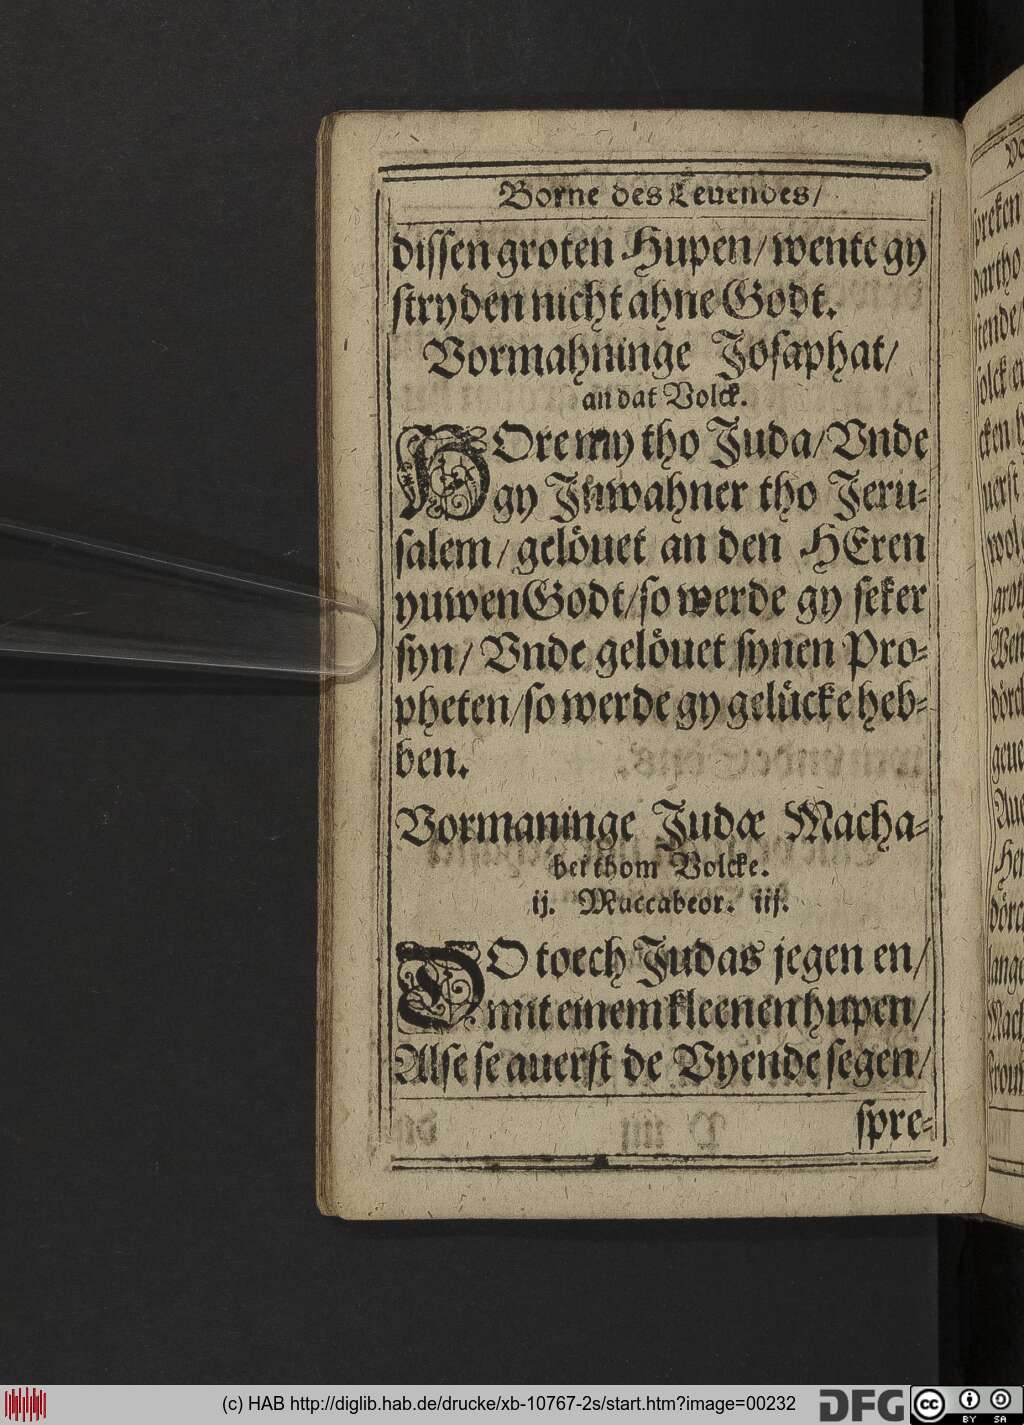 Borne des Leuendes/
dissen groten Hupen/ wente gy
stryden nicht ahne Godt.
Vormahninge Josaphat/
an dat Volck.
HOre my tho Juda/ Vnde
gy Jnwahner tho Jeru-
salem/ gelöuet an den HEren
yuwen Godt/ so werde gy seker
syn/ Vnde gelöuet synen Pro-
pheten/ so werde gy gelücke heb-
ben.
Vormaninge Judæ Macha-
bei thom Volcke.
ij. Maccabeor. iij.
DO toech Judas jegen en/
mit einem kleenen hupen/
Alse se auerst de Vyende segen/
spre-
(c) HAB http://diglib.hab.de/drucke/xb-10767-2s/start.htm?image=00232
DFG
cc
BY SA